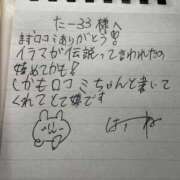 たー33様へ
まず口コミありがとう!
イラマが伝説って言われたの
始めてかも!
しかも口コミちゃんと書いて
くれてとて嬉です
はすね